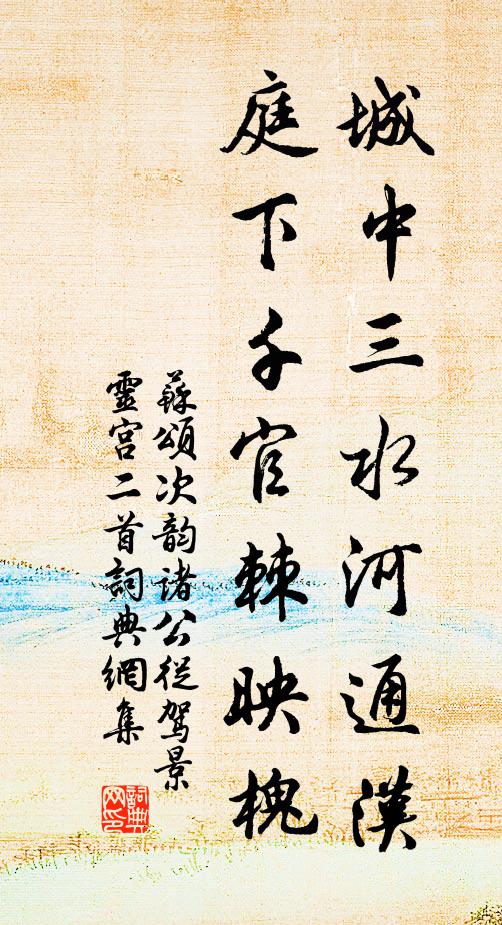 城中三水河通漢
庭下千官棘映槐
蘇頌次韵諸公從駕景
靈宮二首詞典網集
詞典
网印